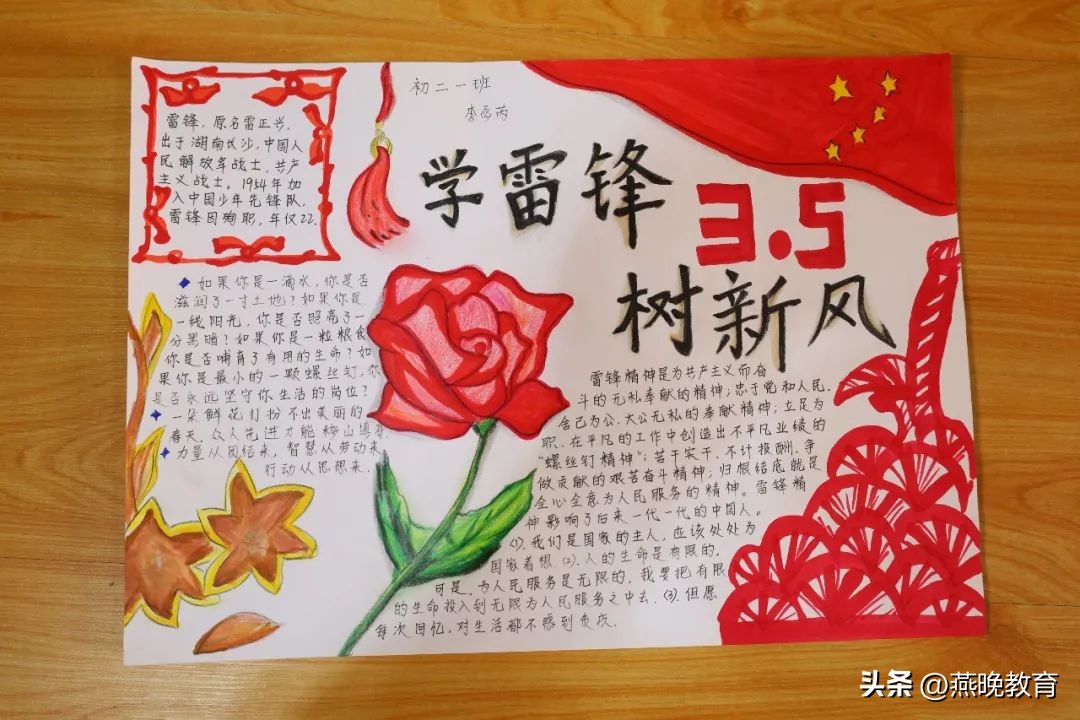 初二一班
学雷锋
3.5
树新风
雷锋，原名雷正兴，
出于湖南长沙，中国人
民解放军战士，共产
主义战士。1954年加
入中国少年先锋队，
雷锋因殉职，年仅22.
如果你是一滴水，你是否
滋润了一寸土地？如果你是
一线阳光，你是否照亮了一
分黑暗？如果你是一粒粮食
你是否哺育了有用的生命？如
果你是最小的一颗螺丝钉，你
是否永远坚守你生活的岗位？
一朵鲜花打扮不出美丽的
春天，众人先进才能移山填海
力量从团结来，智慧从劳动来
行动从思想来.
雷锋精神是为共产主义而奋
斗的无私奉献的精神；忠于党和人民、
舍己为公、大公无私的奉献精神；立足为
职、在平凡的工作中创造出不平凡业绩的
“螺丝钉精神”；苦干实干、不计报酬、争
做贡献的艰苦奋斗精神；归根结底就是
全心全意为人民服务的精神。雷锋精
神影响了后来一代一代的中国人。
⑴.我们是国家的主人，应该处处为
国家着想.⑵.人的生命是有限的，
可是，为人民服务是无限的，我要把有限
的生命投入到无限为人民服务之中去.⑶.但愿
每次回忆，对生活都不感到负疚.
头条 @燕晚教育